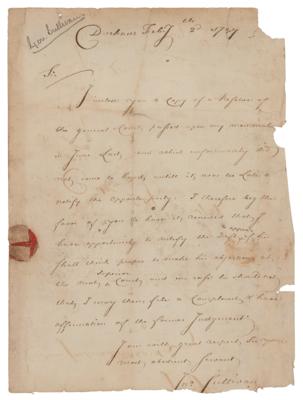 Gen. Sullivan
Durham Feby 2d 1787
Sir
I inclose you a Copy of a Resolve of
the general Court, passed upon my memorial
in June Last, and which unfortunately did
not come to hand, untill it was too Late to
notify the opposite party. I therefore beg the
favor of you to have it renewed that I
have opportunity to notify the
shall think proper to make his appearance at
the next Superior Court, and in case he should not
that I may then file a Complaint, & have
affirmation of the former Judgment.
I am with great respect, Sir your
most obedient Servant
Jno Sullivan